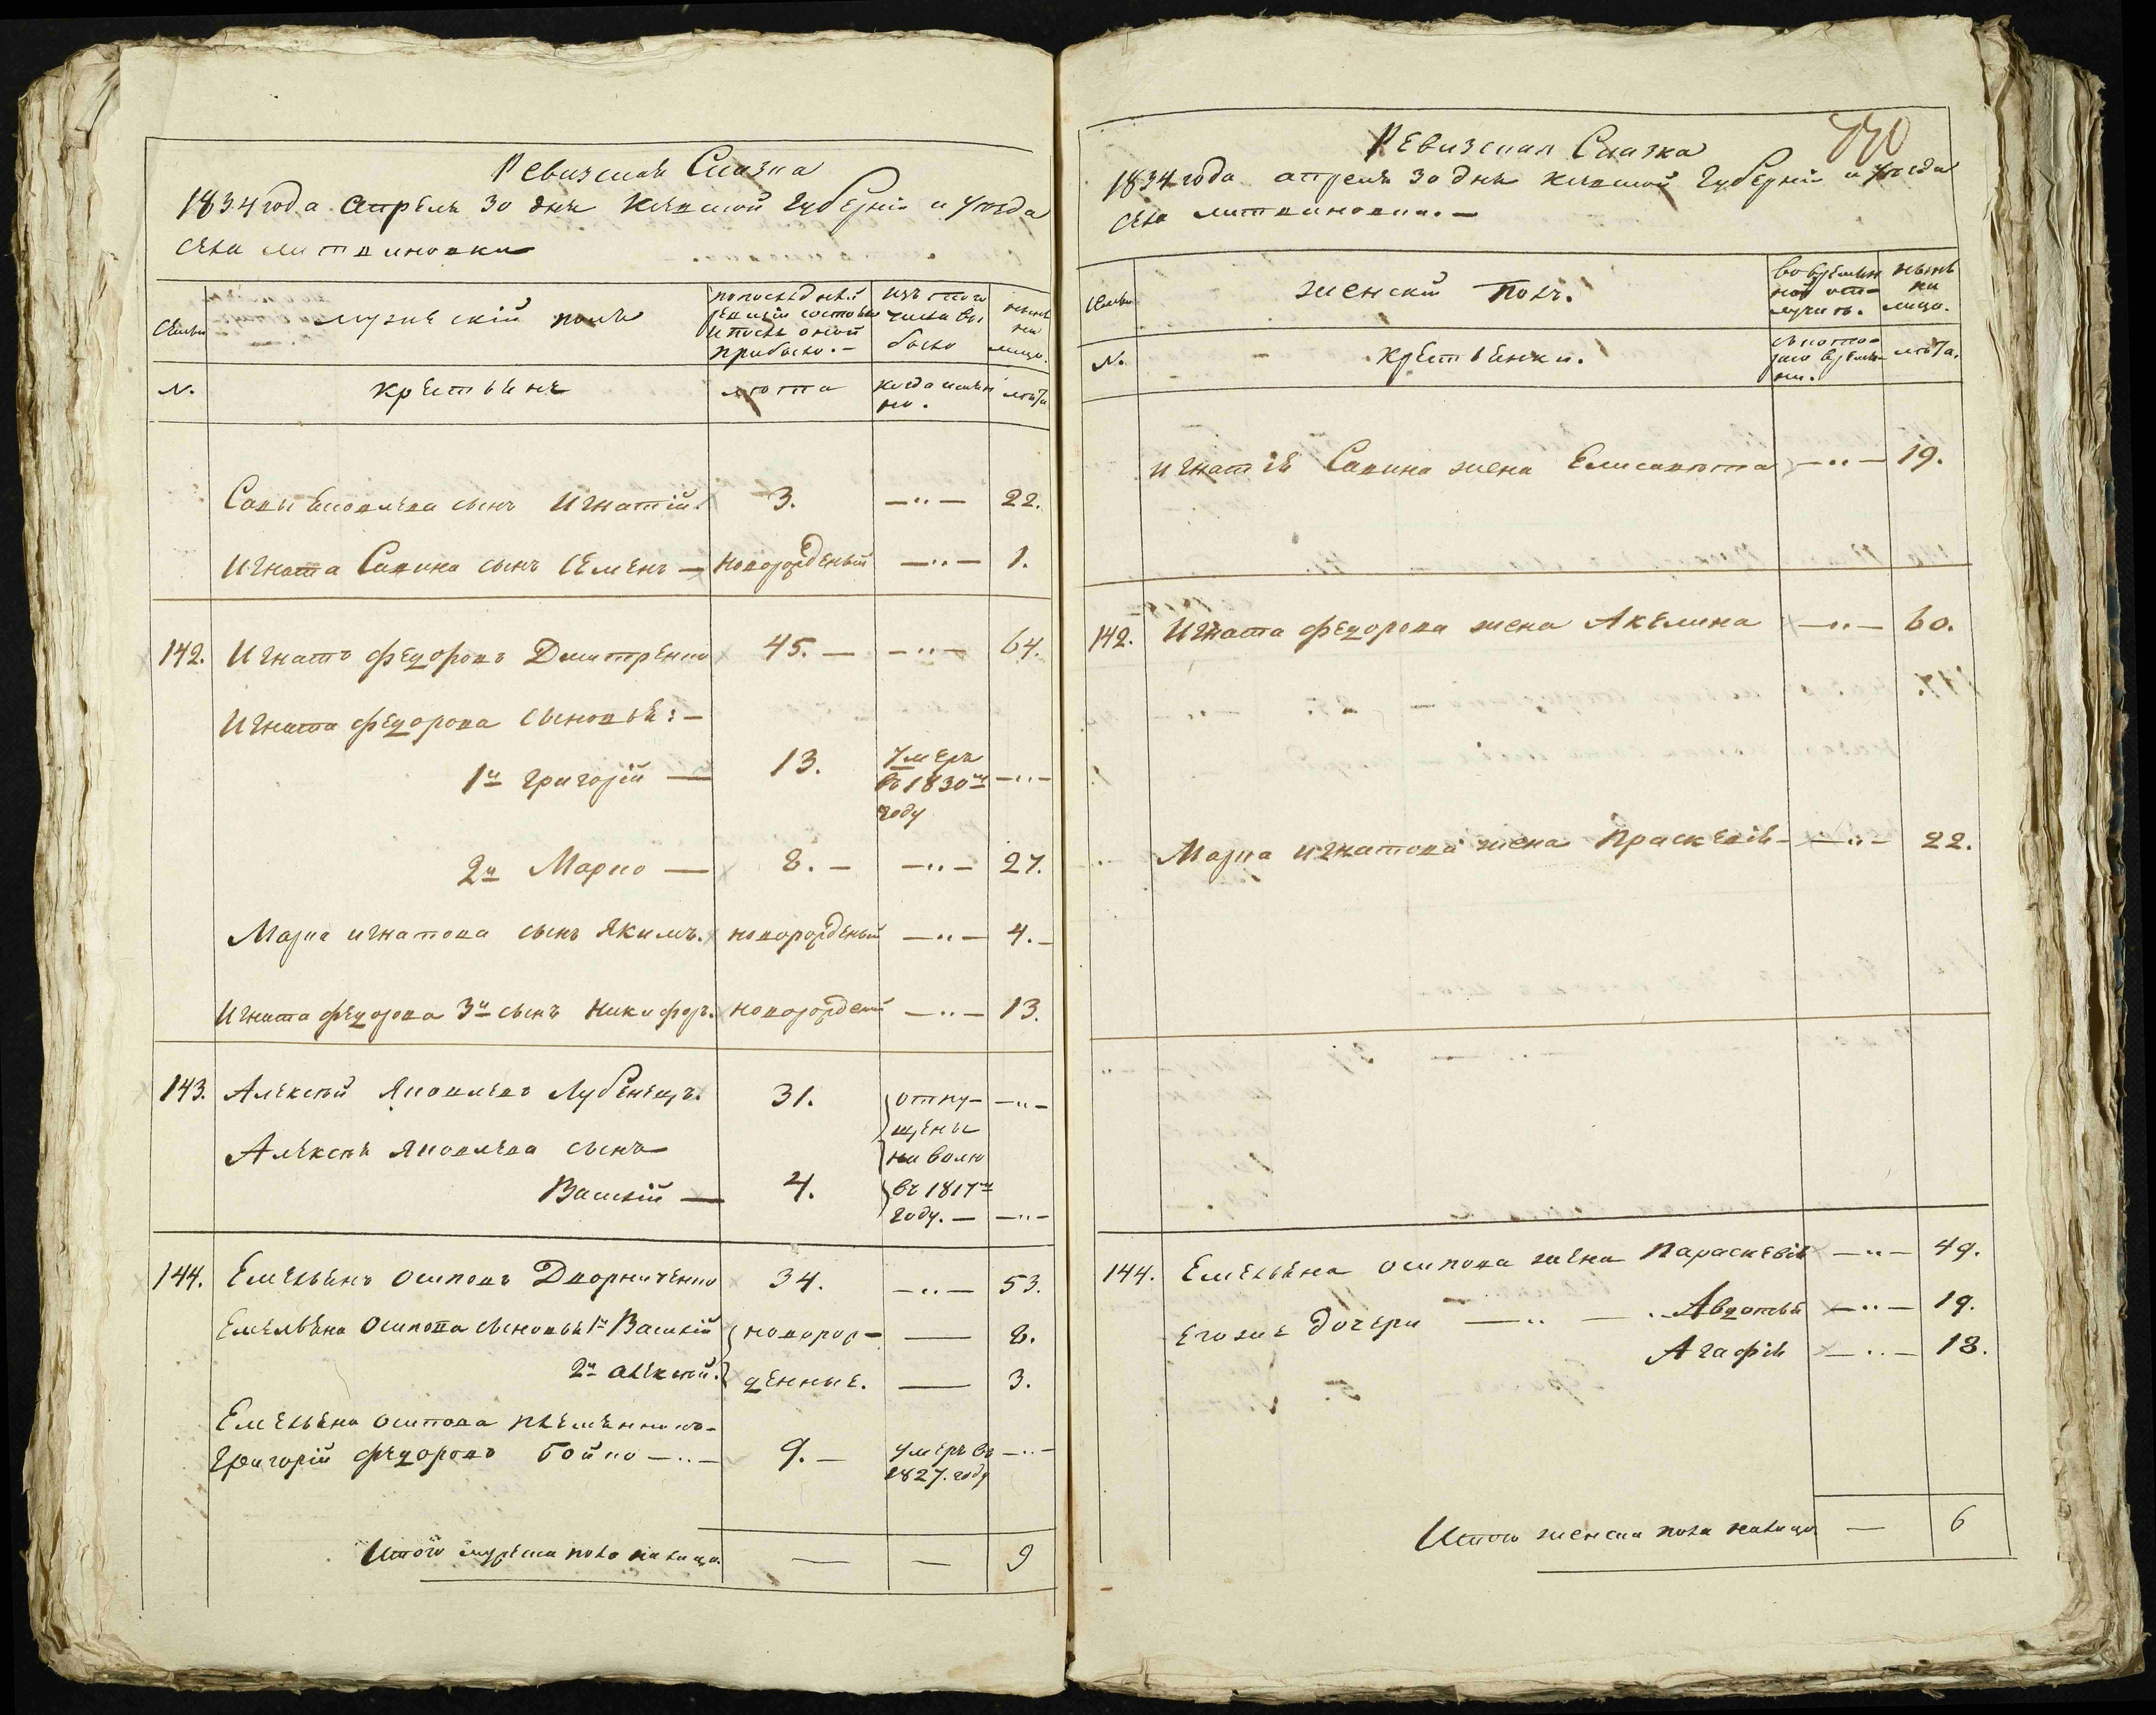 Ревизская Сказка
1834 года Апреля 30 дня Киевской Губернiи и уѣзда
села Литвиновки
Семьи
мужескiй полъ
по последней ревизiи состояло и после оной прибыло.—
изъ того числа вы было
ныне на лицо.
№.
крестьяне
лѣта
когда имянно.
лѣта
Савы Яковлева сынъ Игнатiй 3. —"— 22.
Игната Савина сынъ Семенъ — новорожденый —"— 1.
142. Игнатъ Федоровъ Дмитренко 45. — —"— 64.
Игната Федорова сыновья: —
1й Григорiй — 13. умеръ въ 1830м году —"—
2й Марко — 8. — —"— 27.
Марка Игнатова сынъ Якимъ. новорожденый —"— 4.—
Игната Федорова 3й сынъ Никифоръ. новорожденый —"— 13.
143. Алексѣй Яковлевъ Лубенецъ. 31. отпущены на волю въ 1817м году. — —"—
Алексѣя Яковлева сынъ
Василiй — 4. —"—
144. Емельянъ Осиповъ Дворниченко 34. —"— 53.
Емельяна Осипова сыновья 1й Василiй новорож— — 8.
2й Алексѣй. денные. — 3.
Емельяна Осипова племянникъ—
Григорiй Федоровъ Бойко —"— 9. — умеръ въ 1827. году —"—
Итого мужеска пола на лицо. — — 9
770
Ревизская Сказка
1834 года апреля 30 дня Киевской Губернiи и уѣзда
села Литвиновки. —
Семьи
женскiй полъ.
во временной отлучке.
ныне на лицо.
№.
крестьянки.
съ которого времени.
лѣта.
Игнатiя Савина жена Елисавѣта —"— 19.
142. Игната Федорова жена Акелина —"— 60.
Марка Игнатова жена Праскевiя —"— 22.
144. Емельяна Осипова жена Параскевiя —"— 49.
Его же дочери —"— Авдотья —"— 19.
Агафiя —"— 13.
Итого женска пола на лицо — 6